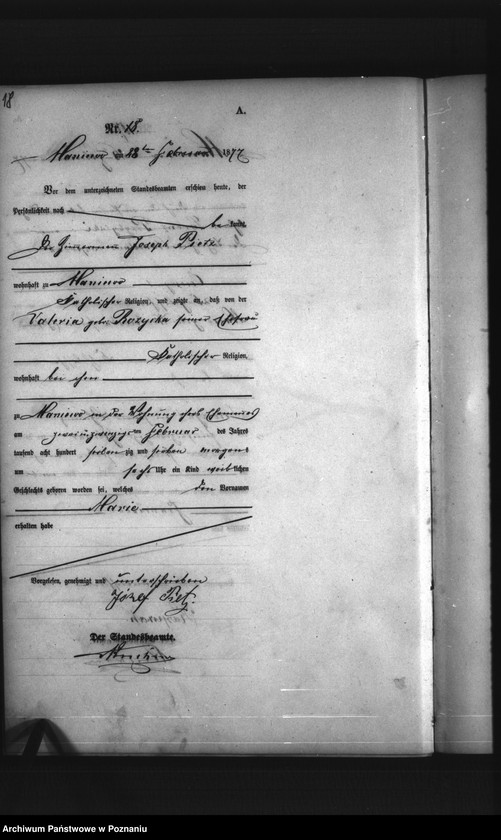 18
A.
Nr. 18.
Maniewo am ten Februar 1877
Vor dem unterzeichneten Standesbeamten erschien heute, der
Persönlichkeit nach
be kannt,
Der Joseph Pietz
wohnhaft zu Maniewo
Katholischer Religion, und zeigte an, daß von der
Valeria geb. Rozycka seiner Ehefrau
Katholischer Religion,
wohnhaft bei ihm
zu Maniewo in der Wohnung ihres Ehemannes
am zweiundzwanzigsten Februar des Jahres
tausend acht hundert sieben zig und sieben morgens
um sechs Uhr ein Kind weiblichen
Geschlechts geboren worden sei, welches den Vornamen
Marie
erhalten habe
Vorgelesen, genehmigt und unterschrieben
Józef Pietz
Der Standesbeamte.
Archiwum Państwowe w Poznaniu